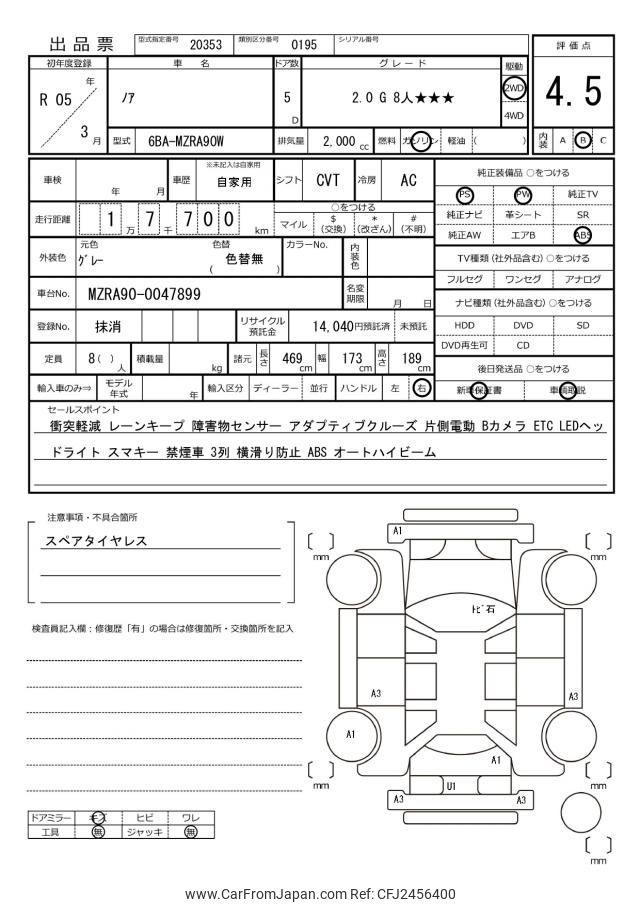 出品票
型式指定番号 20353 類別区分番号 0195 シリアル番号
評価点
4.5
内装 A B C
初年度登録 車名 ドア数 グレード 駆動
R 05 年 3 月
ノア
5 D
2.0 G 8人★★★
2WD
4WD
型式 6BA-MZRA90W 排気量 2,000 cc 燃料 ガソリン 軽油 ( )
車検 年 月 車歴 ※未記入は自家用 自家用 シフト CVT 冷房 AC
純正装備品 ○をつける
PS PW 純正TV
純正ナビ 革シート SR
純正AW エアB ABS
走行距離 1 万 7 千 7 0 0 km
○をつける
マイル $ (交換) * (改ざん) # (不明)
外装色 元色 グレー 色替 ( 色替無 ) カラーNo. 内装色
TV種類 (社外品含む) ○をつける
フルセグ ワンセグ アナログ
車台No. MZRA90-0047899 名変期限 月 日
ナビ種類 (社外品含む) ○をつける
HDD DVD SD
DVD再生可 CD
登録No. 抹消 リサイクル預託金 14,040円預託済 未預託
定員 8 ( ) 人 積載量 kg 諸元 長さ 469 cm 幅 173 cm 高さ 189 cm
後日発送品 ○をつける
新車保証書 車輌取説
輸入車のみ⇒ モデル年式 年 輸入区分 ディーラー 並行 ハンドル 左 右
セールスポイント
衝突軽減 レーンキープ 障害物センサー アダプティブクルーズ 片側電動 Bカメラ ETC LEDヘッ
ドライト スマキー 禁煙車 3列 横滑り防止 ABS オートハイビーム
注意事項・不具合箇所
スペアタイヤレス
検査員記入欄:修復歴「有」の場合は修復箇所・交換箇所を記入
A1
mm
mm
トビ石
A3
A3
A1
A1
mm
mm
U1
A3
A3
mm
ドアミラー キズ ヒビ ワレ
工具 無 ジャッキ 無
www.CarFromJapan.com Ref: CFJ2456400